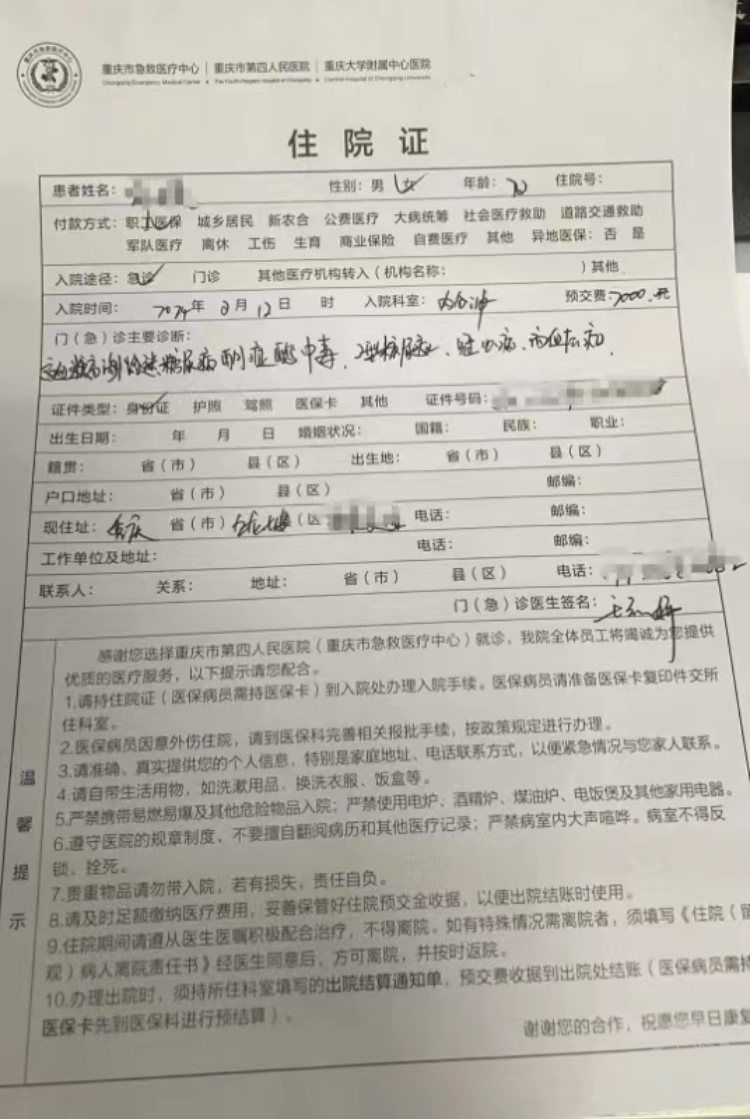 重庆市急救医疗中心 | 重庆市第四人民医院 | 重庆大学附属中心医院
Chongqing Emergency Medical Center The Fourth People's Hospital of Chongqing Central Hospital of Chongqing University
住院证
患者姓名: 性别:男 女 年龄: 住院号:
付款方式:职工医保 城乡居民 新农合 公费医疗 大病统筹 社会医疗救助 道路交通救助
军队医疗 离休 工伤 生育 商业保险 自费医疗 其他 异地医保:否 是
入院途径:急诊 门诊 其他医疗机构转入(机构名称: )其他
入院时间: 年 月 12 日 时 入院科室: 预交费:7000.元
门(急)诊主要诊断:
糖尿病酮症酸中毒、2型糖尿病、冠心病、高血压病
证件类型:身份证 护照 驾照 医保卡 其他 证件号码:
出生日期: 年 月 日 婚姻状况: 国籍: 民族: 职业:
籍贯: 省(市) 县(区) 出生地: 省(市) 县(区)
户口地址: 省(市) 县(区) 邮编:
现住址:重庆 省(市) (区 电话: 邮编:
工作单位及地址: 电话: 邮编:
联系人: 关系: 地址: 省(市) 县(区) 电话:
门(急)诊医生签名:
感谢您选择重庆市第四人民医院(重庆市急救医疗中心)就诊,我院全体员工将竭诚为您提供
优质的医疗服务,以下提示请您配合。
1.请持住院证(医保病员需持医保卡)到入院处办理入院手续。医保病员请准备医保卡复印件交所
住科室。
2.医保病员因意外伤住院,请到医保科完善相关报批手续,按政策规定进行办理。
3.请准确、真实提供您的个人信息,特别是家庭地址、电话联系方式,以便紧急情况与您家人联系。
4.请自带生活用物,如洗漱用品、换洗衣服、饭盒等。
5.严禁携带易燃易爆及其他危险物品入院;严禁使用电炉、酒精炉、煤油炉、电饭煲及其他家用电器。
6.遵守医院的规章制度,不要擅自翻阅病历和其他医疗记录;严禁病室内大声喧哗。病室不得反
锁、拴死。
7.贵重物品请勿带入院,若有损失,责任自负。
8.请及时足额缴纳医疗费用,妥善保管好住院预交金收据,以便出院结账时使用。
9.住院期间请遵从医生医嘱积极配合治疗,不得离院。如有特殊情况需离院者,须填写《住院(留
观)病人离院责任书》经医生同意后,方可离院,并按时返院。
10.办理出院时,须持所住科室填写的出院结算通知单,预交费收据到出院处结账(医保病员需持
医保卡先到医保科进行预结算)。
谢谢您的合作,祝愿您早日康复
温馨提示